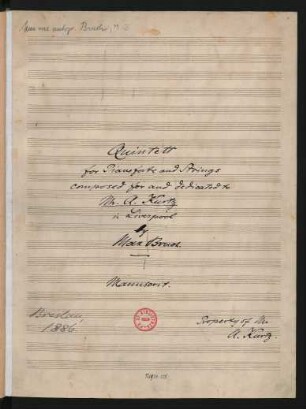 Quintett
for Pianoforte and Strings
composed for and dedicated to
Mr. A. Kurtz
in Liverpool
by
Max Bruch
Manuscript.
Breslau,
1886
Property of Mr
A. Kurtz.